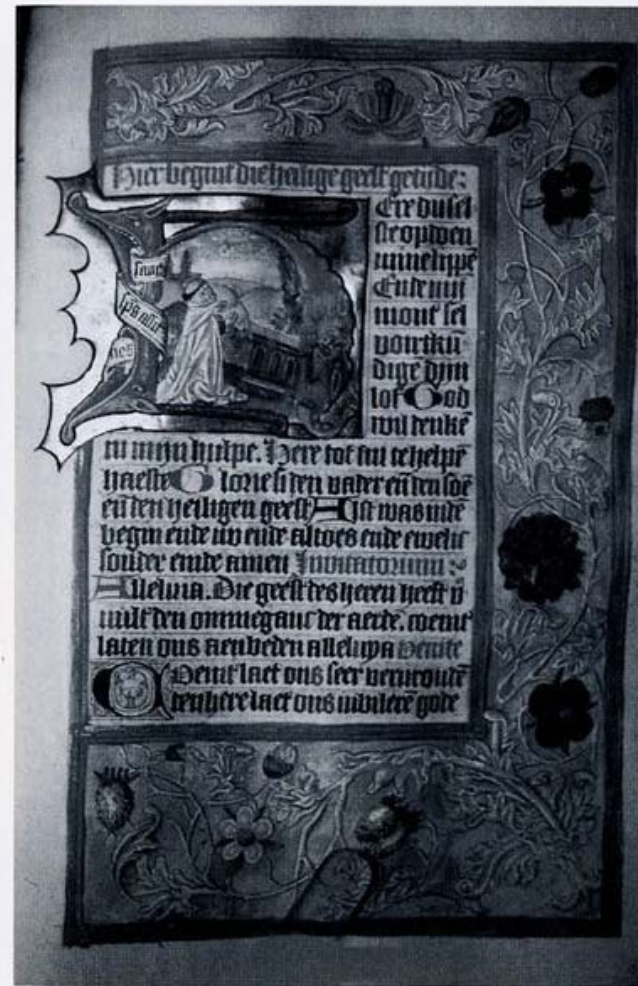 Hier begint die heilige geest getide:
Ere du sel
ste opdoen
mine lippē
Ende mī
mont sel
vortkū
dige dyn
lof God
wil denkē
in mijn hulpe. Here tot mi te helpē
haeste Glorie si den vader eñ den soē
eñ den heiligen geest Alst was inde
begin ende nv ende altoes ende ewelic
sonder einde amen Invitatorium:
Alleluia. Die geest des heren heeft v̄
uult den ommeganc der aerde. coemt
laten ons aenbeden alleluya Venite
Coemt laet ons seer vervrouwē
den here laet ons iubilerē gode